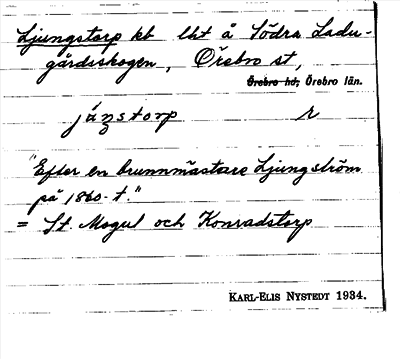 Ljungstorp kb lht å Södra Ladu-
gårdsskogen, Örebro st,
Örebro hd, Örebro län.
jáŋstorp r
"Efter en brunnmästare Ljungström
på 1860-t."
= St. Mogul och Konradstorp
KARL-ELIS NYSTEDT 1934.